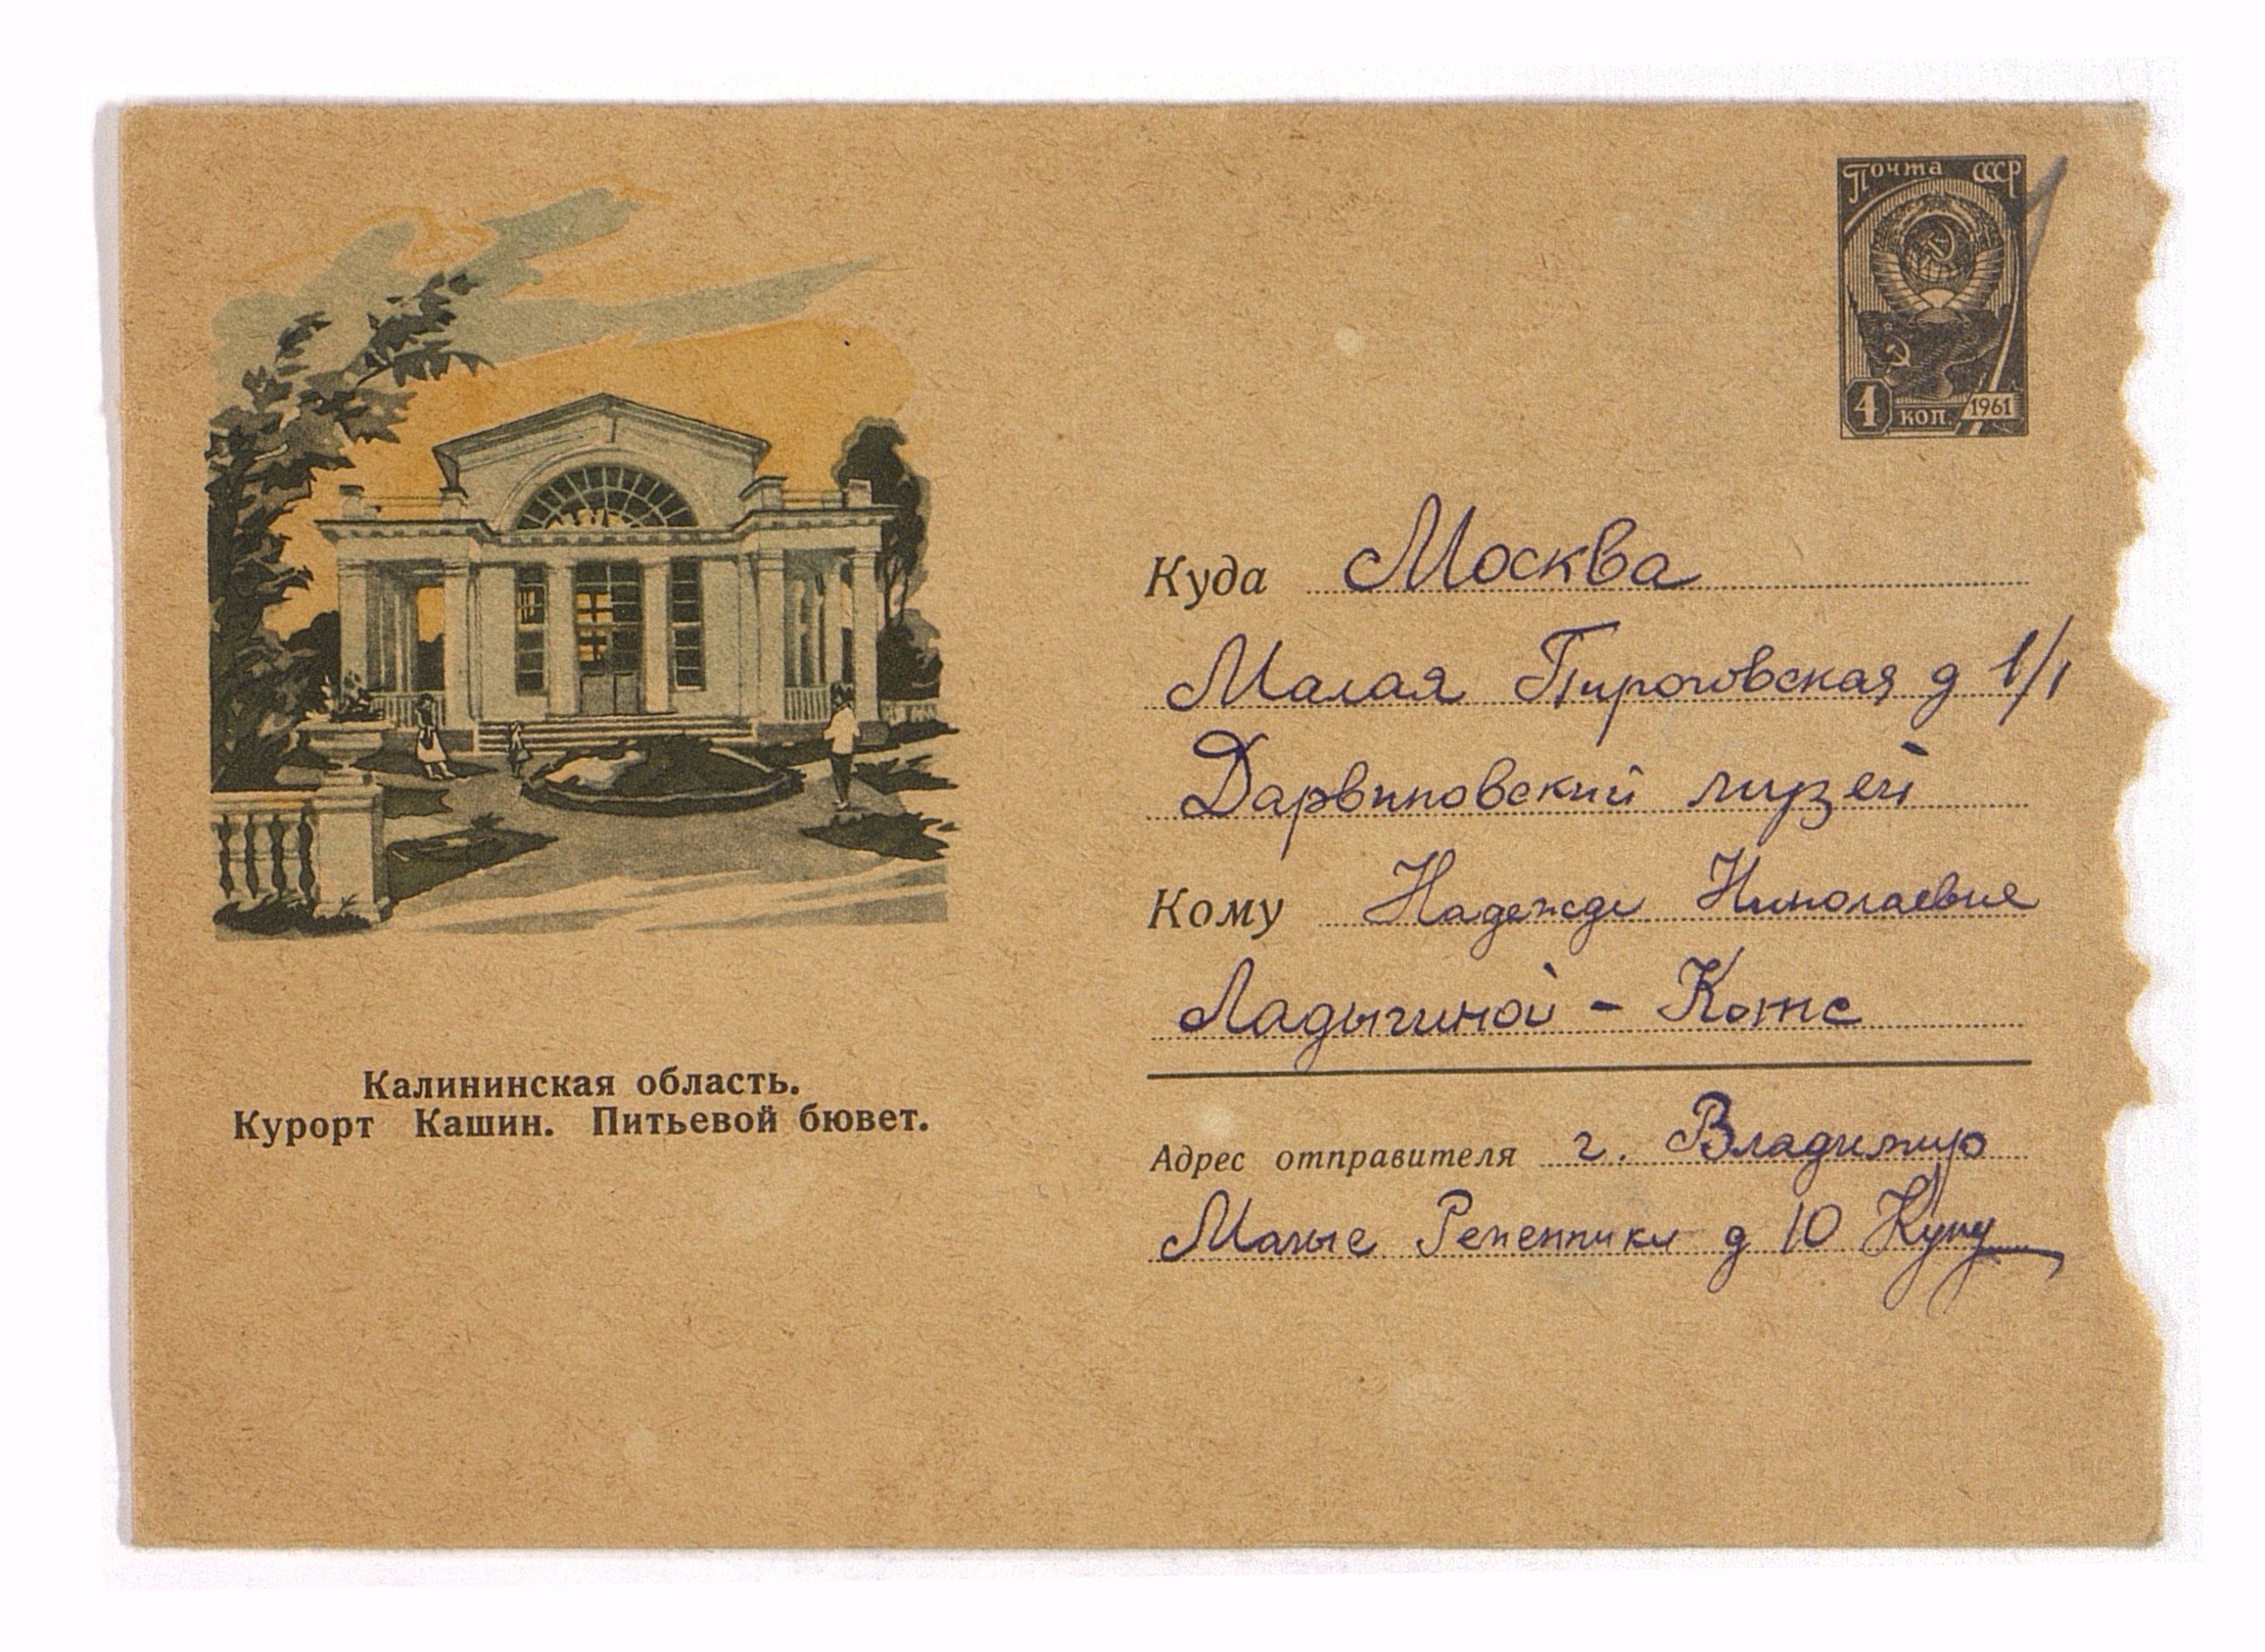 Почта СССР
4 коп. 1961
Куда Москва
Малая Пироговская д 1/1
Дарвиновский музей
Кому Надежде Николаевне
Ладыгиной - Котс
Калининская область.
Курорт Кашин. Питьевой бювет.
Адрес отправителя г. Владимир
Малые Ременники д 10